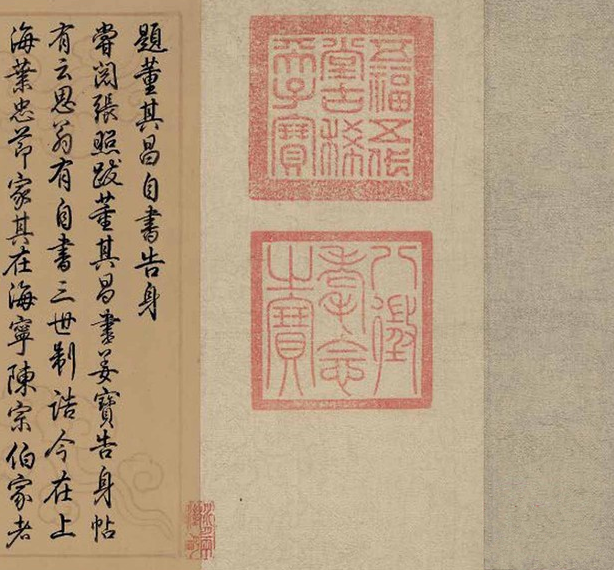 五福五代
堂古稀
天子寶
八徵
耄念
之寶
題董其昌自書告身
嘗閱張照跋董其昌書姜寶告身帖
有云思翁有自書三世制誥今在上
海葉忠節家其在海寧陳宗伯家者